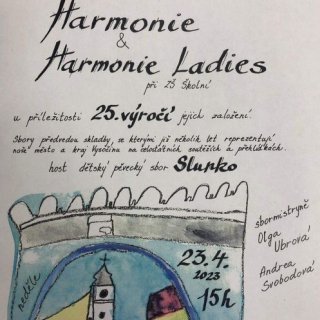 Harmonie
&
Harmonie Ladies
při ZŠ Školní
u příležitosti 25. výročí jejich založení.
Sbory předvedou skladby, se kterými již několik let reprezentují
naše město a kraj Vysočina na celostátních soutěžích a přehlídkách.
host dětský pěvecký sbor Slunko
sbormistryně
Olga
Ubrová
Andrea
Svobodová
neděle
23.4.
2023
15h